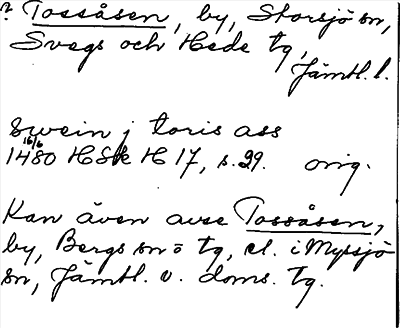 ? Tossåsen, by, Storsjö sn,
Svegs och Hede tg,
Jämtl. l.
swein j toris ass
16/6
1480 HSH H 17, s. 29. orig.
Kan även avse Tossåsen,
by, Bergs sn o tg, el. i Myssjö
sn, Jämtl. v. doms. tg.